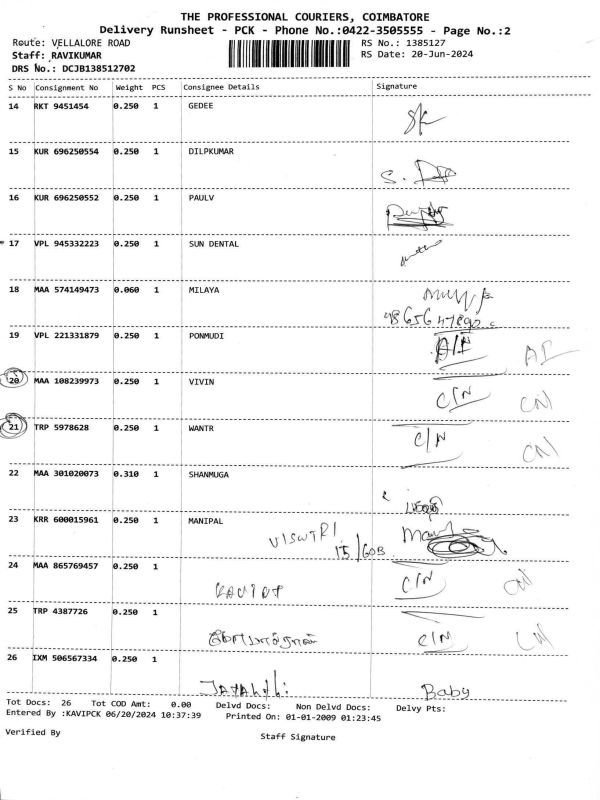 THE PROFESSIONAL COURIERS, COIMBATORE
Delivery Runsheet - PCK - Phone No.:0422-3505555 - Page No.:2
Route: VELLALORE ROAD RS No.: 1385127
Staff: RAVIKUMAR RS Date: 20-Jun-2024
DRS No.: DCJB138512702
S No Consignment No Weight PCS Consignee Details Signature
14 RKT 9451454 0.250 1 GEDEE
15 KUR 696250554 0.250 1 DILPKUMAR
16 KUR 696250552 0.250 1 PAULV
17 VPL 945332223 0.250 1 SUN DENTAL
18 MAA 574149473 0.060 1 MILAYA
19 VPL 221331879 0.250 1 PONMUDI
20 MAA 108239973 0.250 1 VIVIN C/N CN
21 TRP 5978628 0.250 1 WANTR C/N CN
22 MAA 301020073 0.310 1 SHANMUGA
23 KRR 600015961 0.250 1 MANIPAL
24 MAA 865769457 0.250 1 C/N CN
25 TRP 4387726 0.250 1 C/N CN
26 IXM 506567334 0.250 1 Baby
Tot Docs: 26 Tot COD Amt: 0.00 Delvd Docs: Non Delvd Docs: Delvy Pts:
Entered By :KAVIPCK 06/20/2024 10:37:39 Printed On: 01-01-2009 01:23:45
Verified By Staff Signature